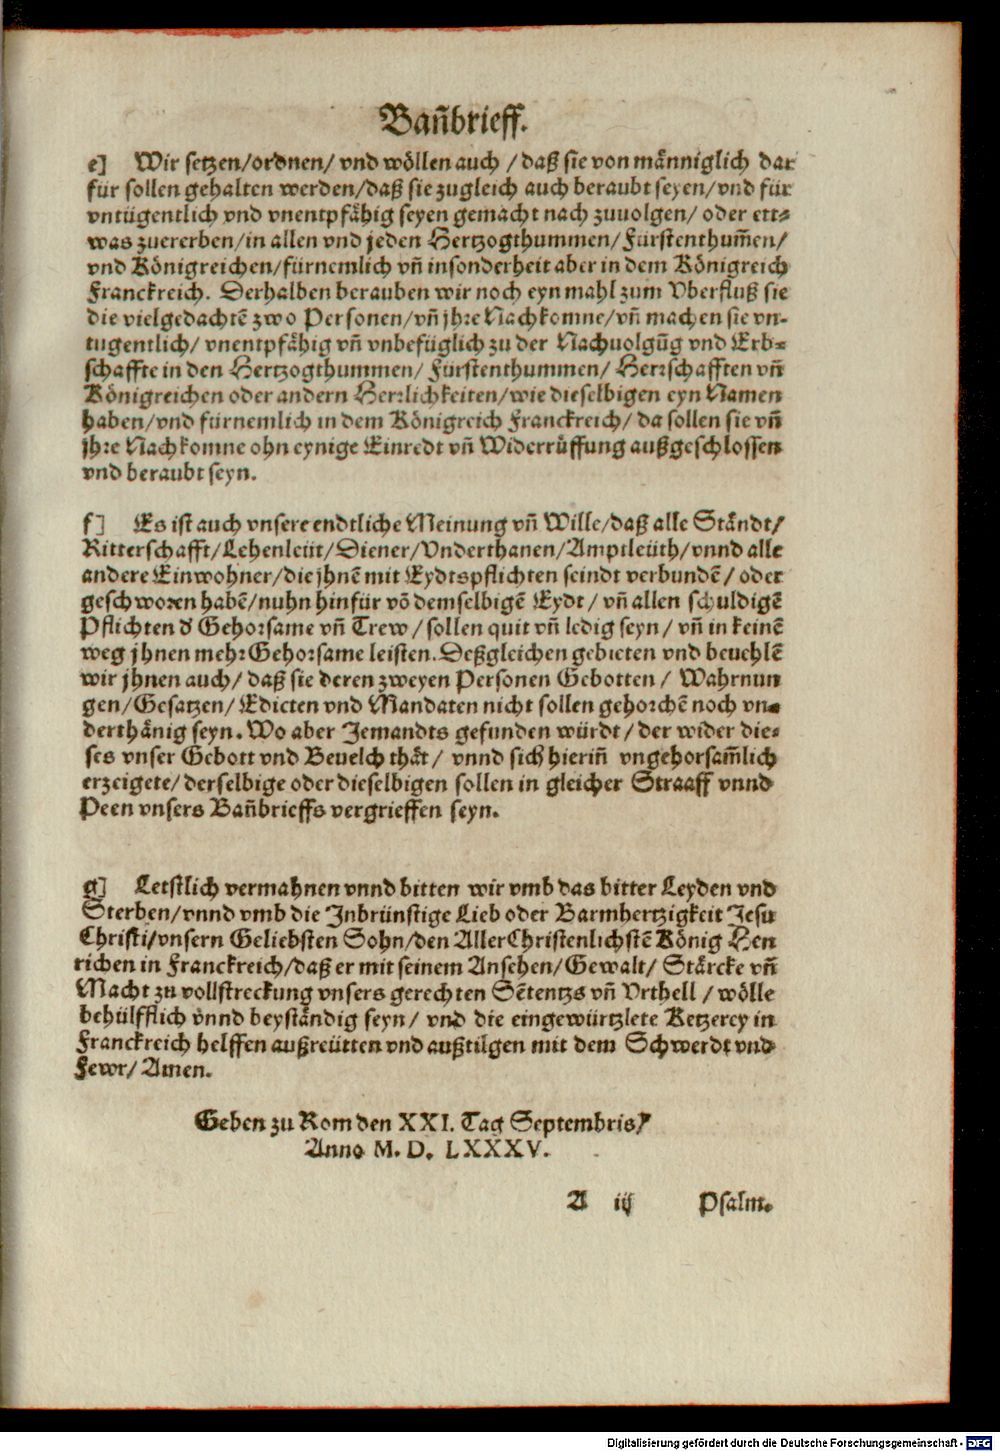 Bañbrieff.
e] Wir setzen/ordnen/ vnd wöllen auch / daß sie von männiglich dar
für sollen gehalten werden/daß sie zugleich auch beraubt seyen/vnd für
vntügentlich vnd vnentpfähig seyen gemacht nach zuuolgen/ oder ett⸗
was zuererben/in allen vnd jeden Hertzogthummen/ Fürstenthum̃en/
vnd Königreichen/fürnemlich vñ insonderheit aber in dem Königreich
Franckreich. Derhalben berauben wir noch eyn mahl zum Vberfluß sie
die vielgedachtẽ zwo Personen/vñ jhre Nachkomne/vñ machen sie vn-
tugentlich/ vnentpfähig vñ vnbefüglich zu der Nachuolgũg vnd Erb⸗
schaffte in den Hertzogthummen/ Fürstenthummen/ Herrschafften vñ
Königreichen oder andern Herrlichkeiten/wie dieselbigen eyn Namen
haben/vnd fürnemlich in dem Königreich Franckreich/ da sollen sie vñ
jhre Nachkomne ohn eynige Einredt vñ Widerrůffung außgeschlossen
vnd beraubt seyn.
f] Es ist auch vnsere endtliche Meinung vñ Wille/daß alle Ständt/
Ritterschafft/Lehenleüt/Diener/Vnderthanen/Amptleüth/vnnd alle
andere Einwohner/die jhnẽ mit Eydtspflichten seindt verbundẽ/ oder
geschworen habẽ/nuhn hinfür võ demselbigẽ Eydt/ vñ allen schuldigẽ
Pflichten d' Gehorsame vñ Trew/ sollen quit vñ ledig seyn/ vñ in keinẽ
weg jhnen mehr Gehorsame leisten. Deßgleichen gebieten vnd beuehlẽ
wir jhnen auch/ daß sie deren zweyen Personen Gebotten/ Wahrnun
gen/Gesatzen/ Edicten vnd Mandaten nicht sollen gehorchẽ noch vn⸗
derthänig seyn. Wo aber Jemandts gefunden würdt/ der wider die⸗
ses vnser Gebott vnd Beuelch thät/ vnnd sich hieriñ vngehorsam̃lich
erzeigete/ derselbige oder dieselbigen sollen in gleicher Straaff vnnd
Peen vnsers Bañbrieffs vergrieffen seyn.
g] Letstlich vermahnen vnnd bitten wir vmb das bitter Leyden vnd
Sterben/vnnd vmb die Inbrünstige Lieb oder Barmhertzigkeit Jesu
Christi/vnsern Geliebsten Sohn/den AllerChristenlichstẽ König Hen
richen in Franckreich/daß er mit seinem Ansehen/Gewalt/ Stärcke vñ
Macht zu vollstreckung vnsers gerechten Sẽtentzs vñ Vrthell / wölle
behülfflich vnnd beyständig seyn/ vnd die eingewürtzlete Ketzerey in
Franckreich helffen außreütten vnd außtilgen mit dem Schwerdt vnd
Fewr/ Amen.
Geben zu Rom den XXI. Tag Septembris/
Anno M. D. LXXXV.
A iij Psalm.
Digitalisierung gefördert durch die Deutsche Forschungsgemeinschaft - DFG